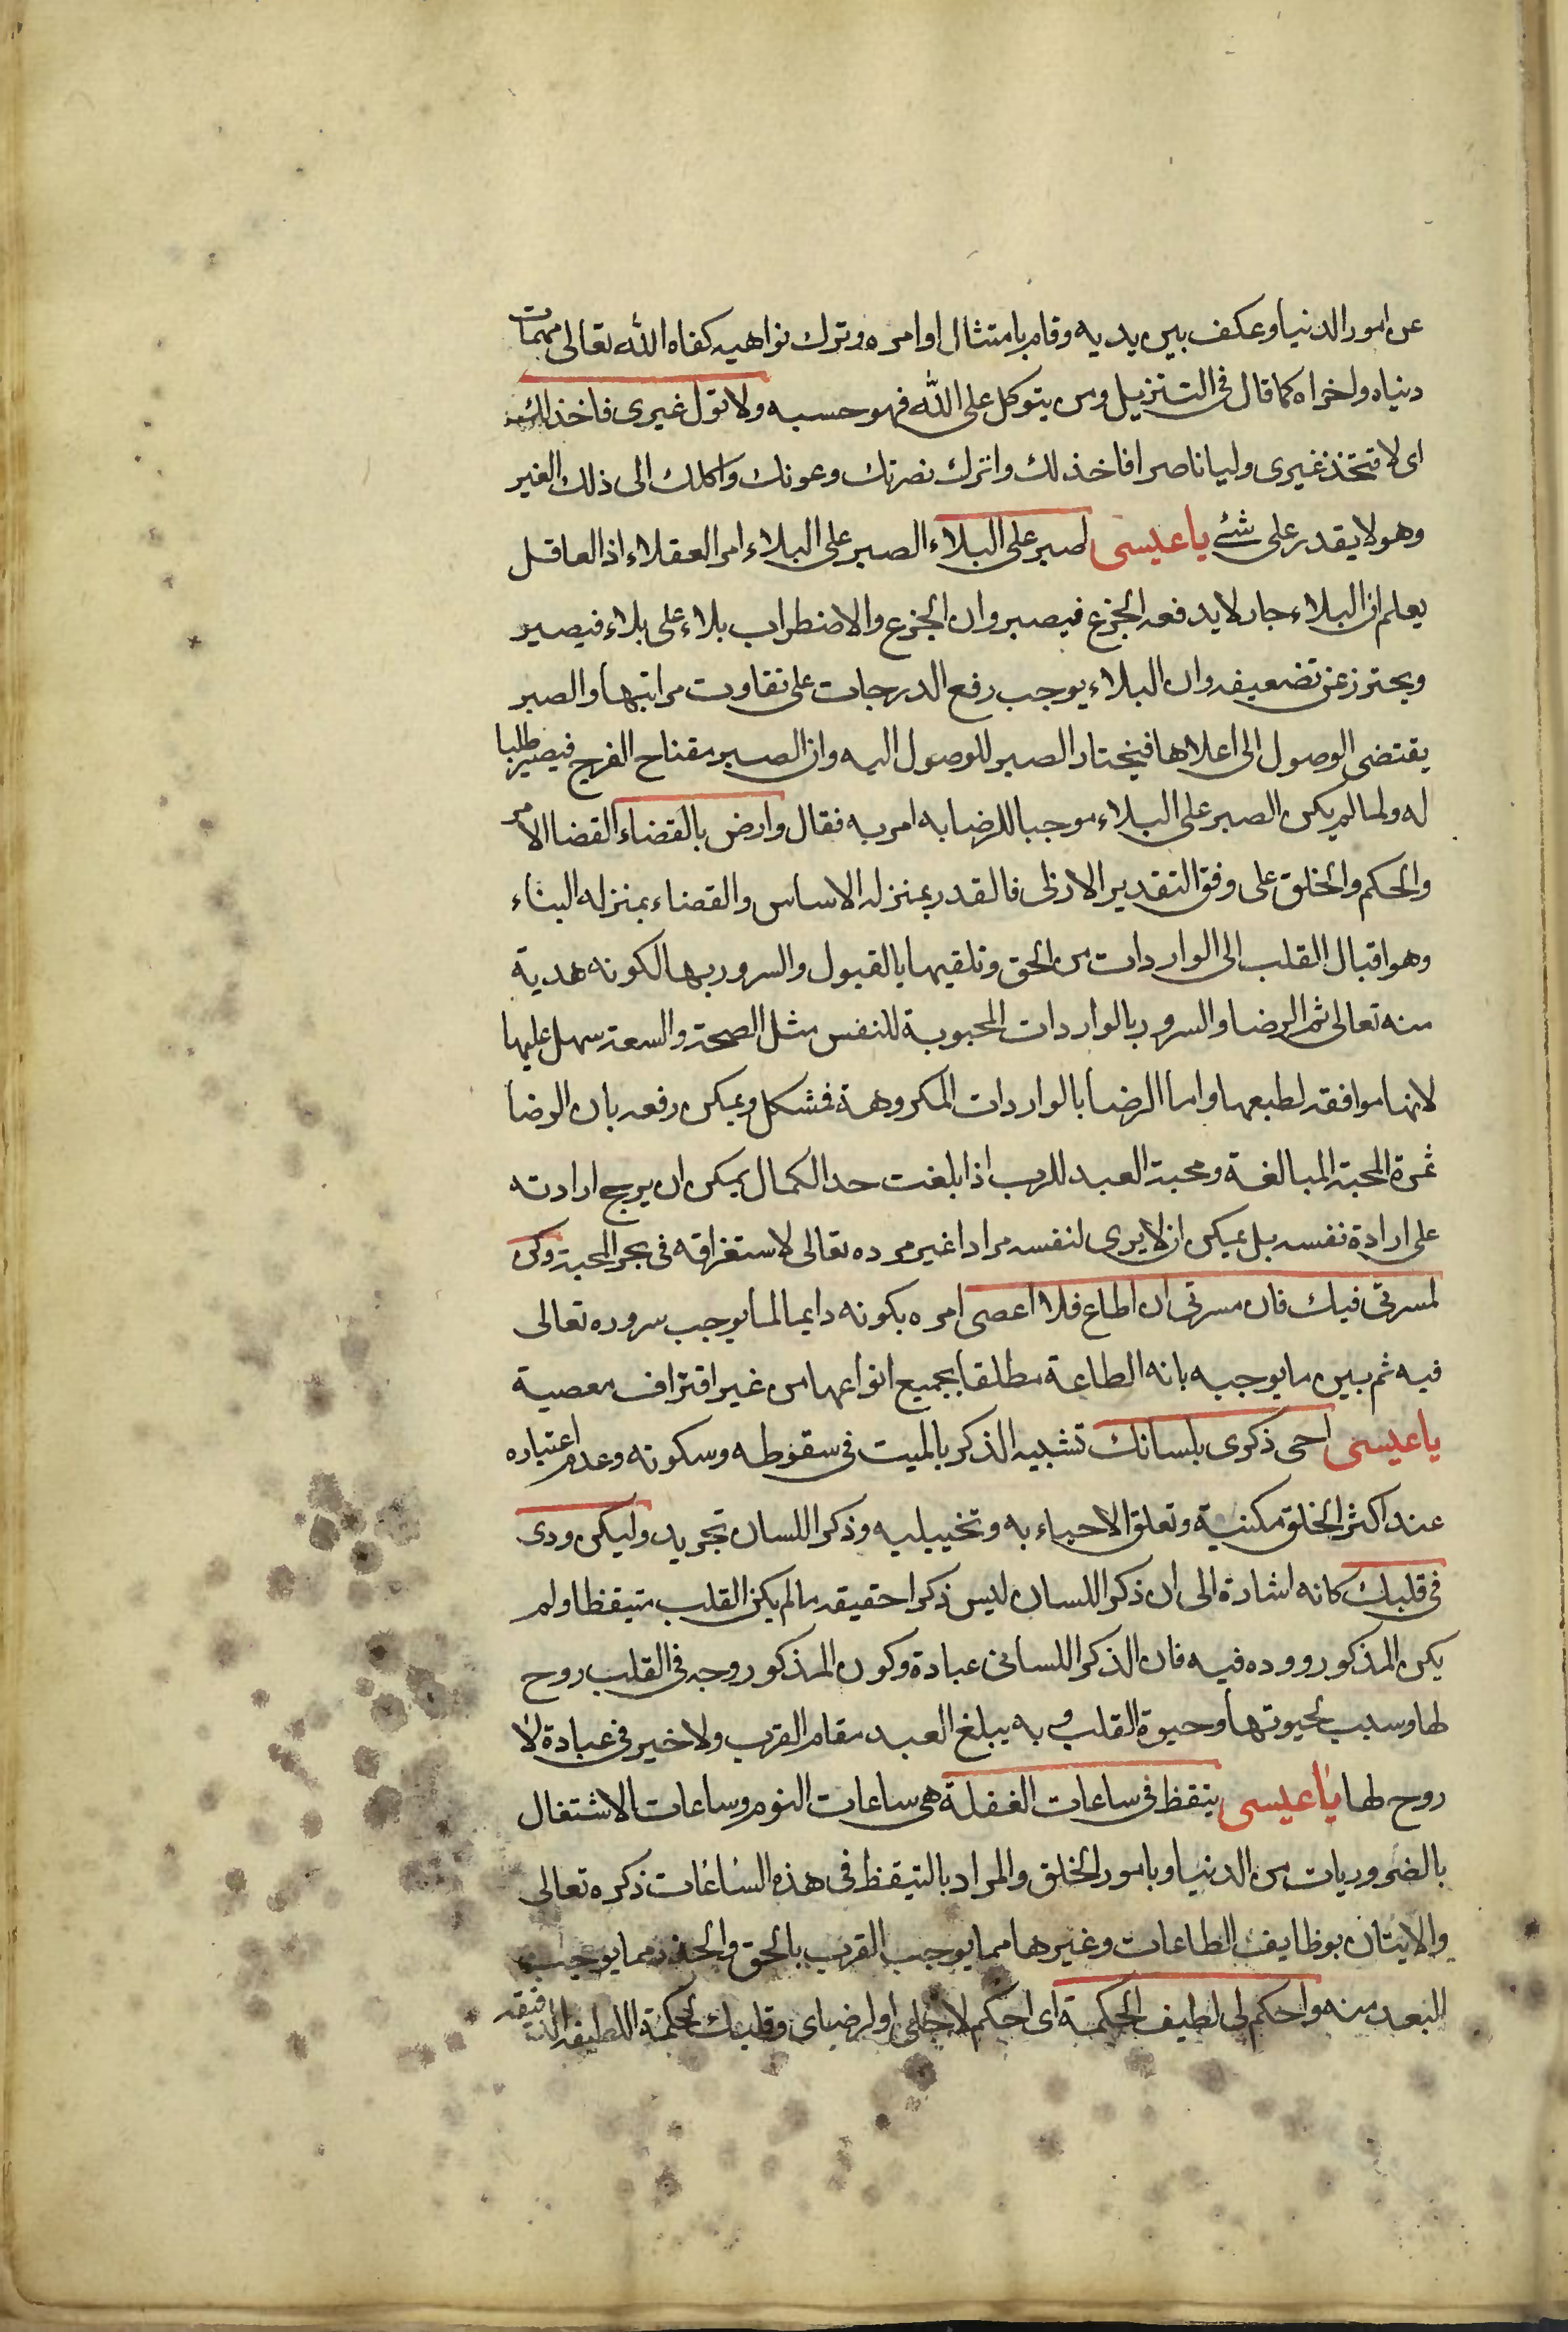 عن امور الدنيا وعكف بين يديه وقام بامتثال اوامره وترك نواهيه كفاه الله تعالى مهمات
دنياه واخراه كما قال فى التنزيل ومن يتوكل على الله فهو حسبه ولا تول غيرى فاخذلك
اى لا تتخذ غيرى وليا ناصرا فاخذلك واترك نصرتك وعونك واكلك الى ذلك الغير
وهو لا يقدر على شئ يا عيسى اصبر على البلاء الصبر على البلاء امر العقلاء اذ العاقل
يعلم ان البلاء جار لا يدفعه الجزع فيصبر وان الجزع والاضطراب بلاء على بلاء فيصبر
ويحترز عن تضعيفه وان البلاء يوجب رفع الدرجات على تفاوت مراتبها والصبر
يقتضى الوصول الى اعلاها فيختار الصبر للوصول اليه وان الصبر مفتاح الفرج فيصبر طلبا
له ولما لم يكن الصبر على البلاء موجبا للرضا به امر به فقال وارض بالقضاء القضا الامر
والحكم والخلق على وفق التقدير الازلى فالقدر بمنزلة الاساس والقضاء بمنزله البناء
وهو اقبال القلب الى الواردات من الحق وتلقيها بالقبول والسرور بها لكونه هدية
منه تعالى ثم الرضا والسرور بالواردات المحبوبة للنفس مثل الصحة والسعة سهل عليها
لانها موافقه لطبعها واما الرضا بالواردات المكروهة فمشكل ويمكن رفعه بان الرضا
ثمرة المحبة المبالغة ومحبة العبد للرب اذا بلغت حد الكمال يمكن ان يرجح ارادته
على ارادة نفسه بل يمكن ان لا يرى لنفسه مرادا غير مرده تعالى لاستغراقه فى بحر المحبة وكن
لمسرتى فيك فان مسرتى ان اطاع فلا اعصى امره بكونه دايما لما يوجب سروره تعالى
فيه ثم بين ما يوجبه بانه الطاعة مطلقا بجميع انواعها من غير اقتراف معصية
يا عيسى احى ذكرى بلسانك تشبيه الذكر بالميت فى سقوطه وسكوته وعدم اعتباره
عند اكثر الخلق مكنية وتعلق الاحياء به وتخييليه وذكر اللسان تجريد وليكن ودى
فى قلبك كانه اشارة الى ان ذكر اللسان ليس ذكرا حقيقه ما لم يكن القلب متيقظا ولم
يكن المذكور ووده فيه فان الذكر اللسانى عبادة وكون المذكور وجه فى القلب روح
لها وسبب لحيوتها وحيوة القلب و به يبلغ العبد مقام القرب ولا خير فى عبادة لا
روح لها يا عيسى تيقظ فى ساعات الغفلة هى ساعات النوم وساعات الاشتغال
بالضروريات من الدنيا وبامور الخلق والمراد بالتيقظ فى هذه الساعات ذكره تعالى
والايتان بوظايف الطاعات وغيرها مما يوجب القرب بالحق والحذر مما يوجب
البعد منه واحكم لى لطيف الحكمة اى احكم لاجلى او لرضاى وقلبك لحكمة اللطيفه الدقيقه